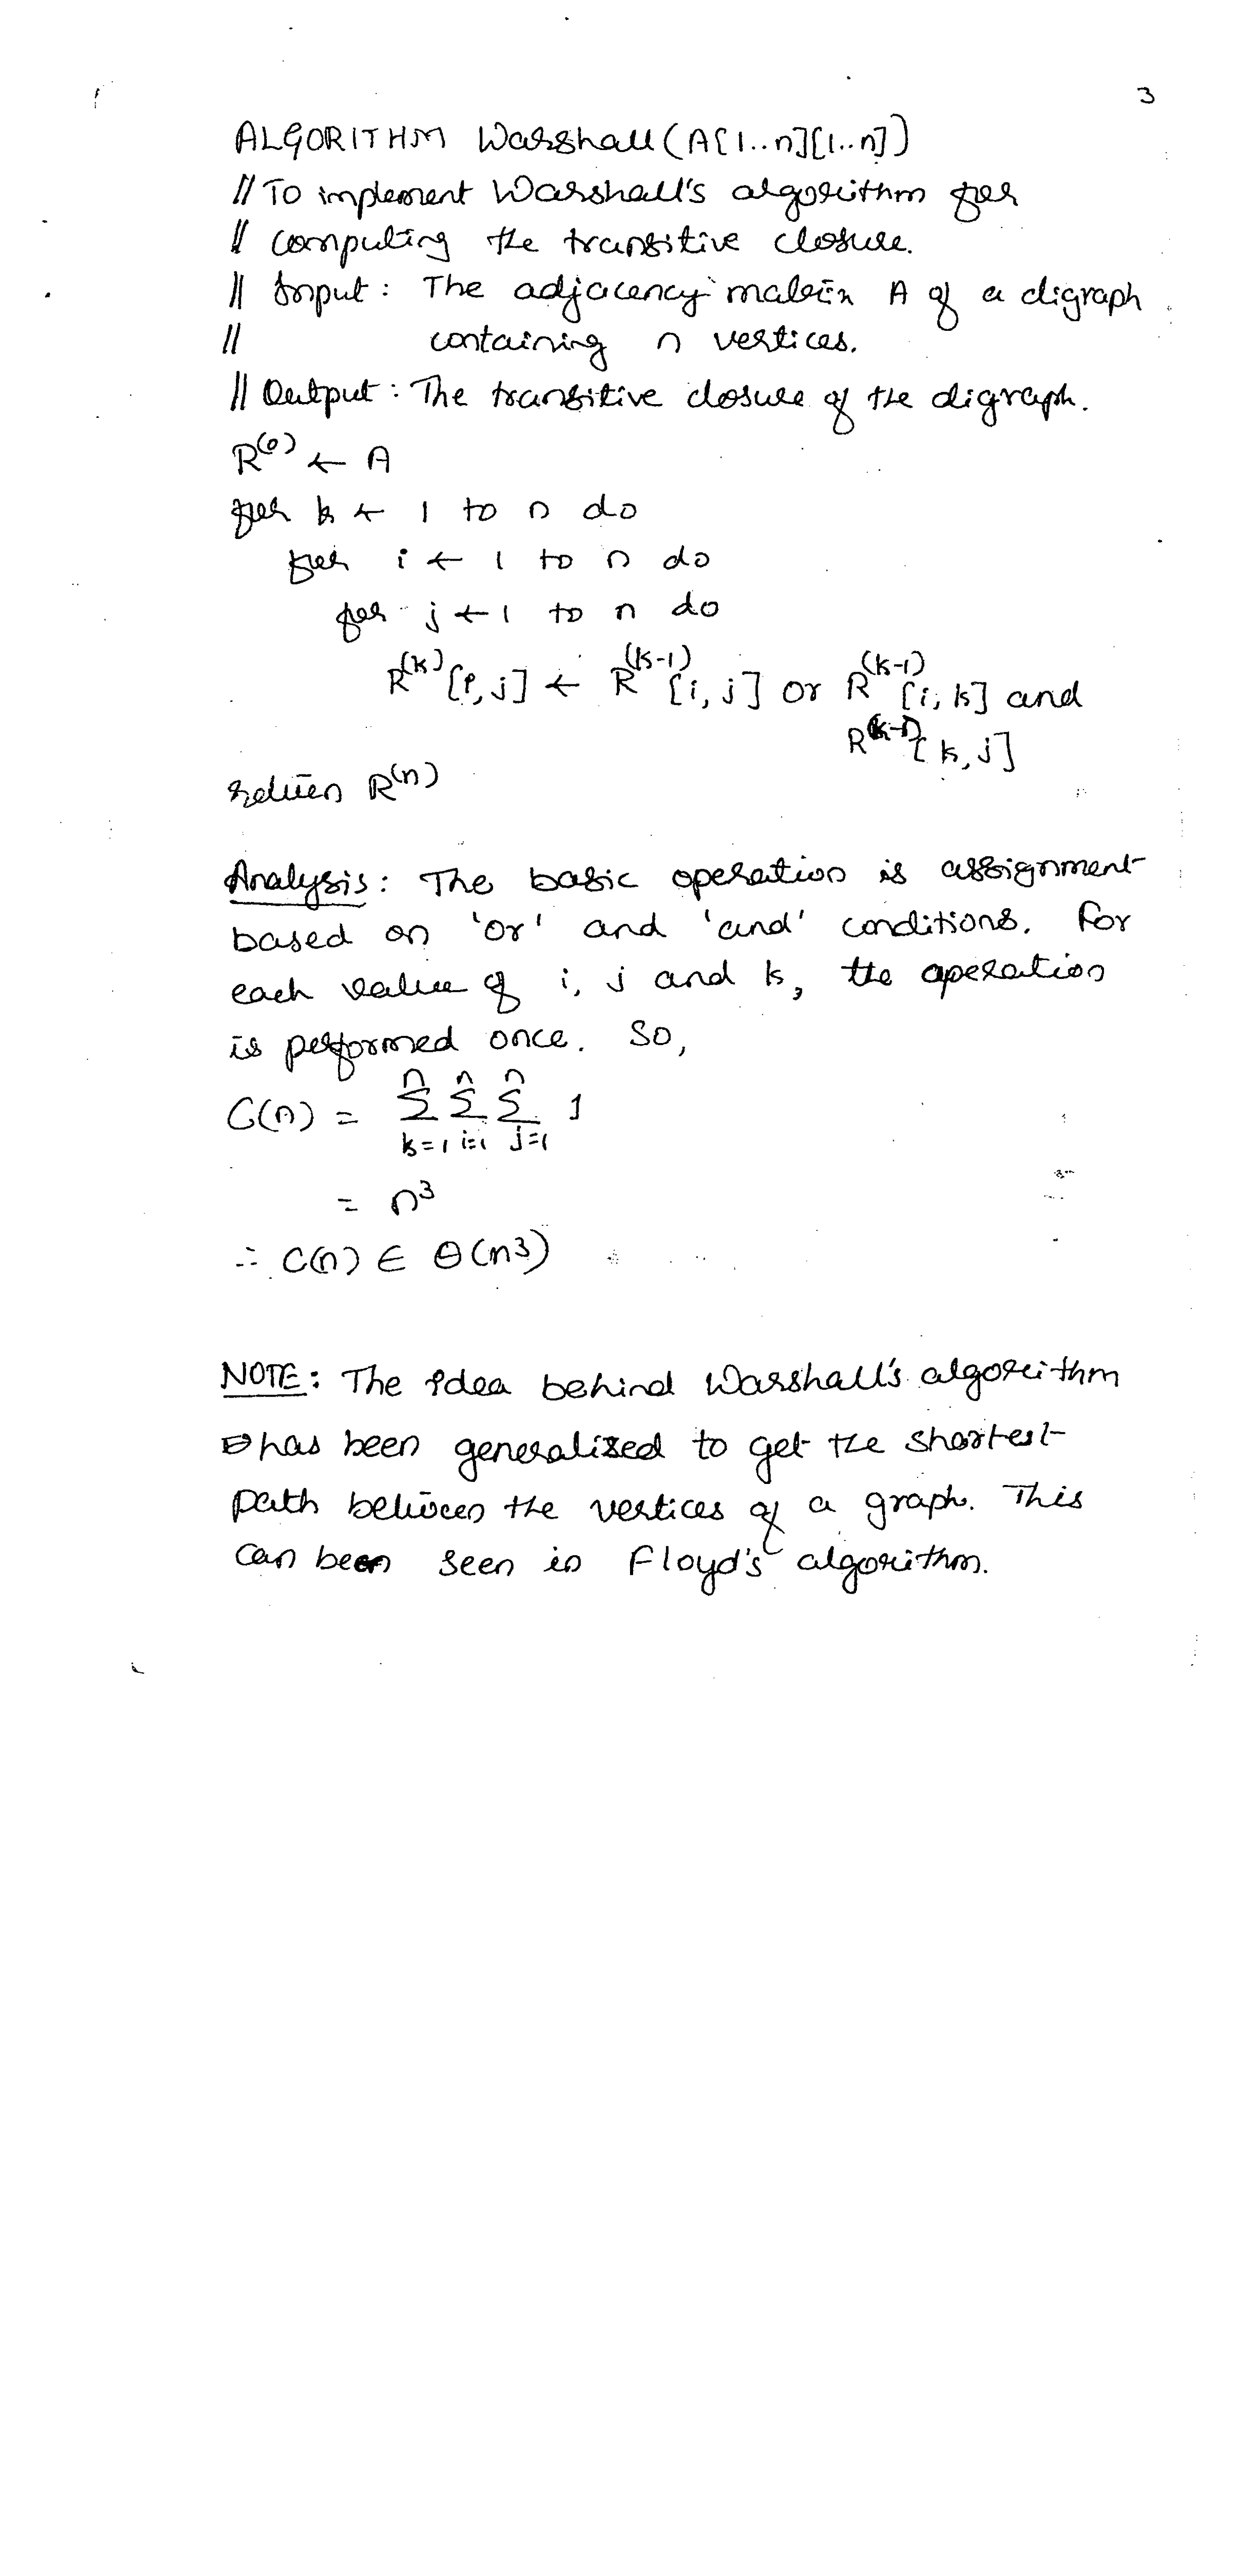 3
ALGORITHM Warshall(A[1..n][1..n])
// To implement Warshall's algorithm for
// computing the transitive closure.
// Input: The adjacency matrix A of a digraph
// containing n vertices.
// Output: The transitive closure of the digraph.
R⁽⁰⁾ ← A
for k ← 1 to n do
for i ← 1 to n do
for j ← 1 to n do
R⁽ᵏ⁾[i,j] ← R⁽ᵏ⁻¹⁾[i,j] or R⁽ᵏ⁻¹⁾[i,k] and
R⁽ᵏ⁻¹⁾[k,j]
return R⁽ⁿ⁾
Analysis: The basic operation is assignment
based on 'or' and 'and' conditions. For
each value of i, j and k, the operation
is performed once. So,
C(n) = Σₖ₌₁ⁿ Σᵢ₌₁ⁿ Σⱼ₌₁ⁿ 1
= n³
∴ C(n) ∈ Θ(n³)
NOTE: The idea behind Warshall's algorithm
has been generalized to get the shortest
path between the vertices of a graph. This
can been seen in Floyd's algorithm.